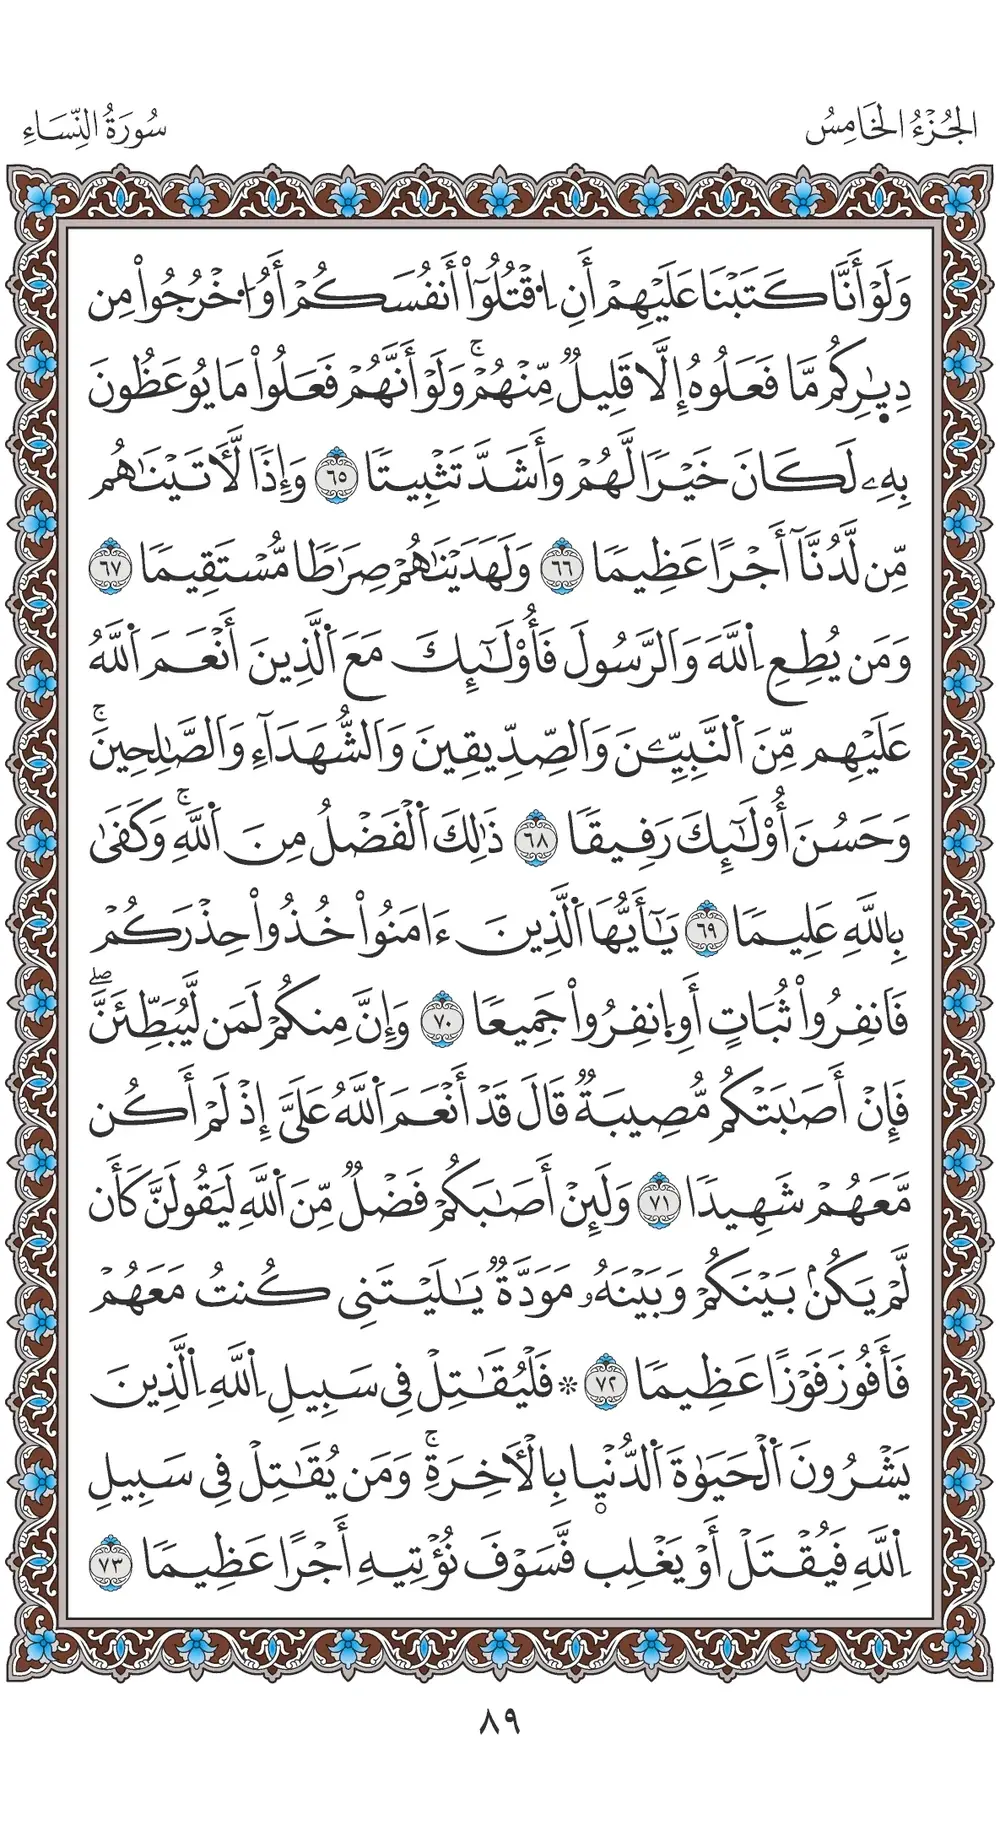 الجُزْءُ الخَامِسُ
سُورَةُ النِّسَاءِ
وَلَوۡ أَنَّا كَتَبۡنَا عَلَيۡهِمۡ أَنِ ٱقۡتُلُوٓاْ أَنفُسَكُمۡ أَوُ ٱخۡرُجُواْ مِن
دِيَٰرِكُم مَّا فَعَلُوهُ إِلَّا قَلِيلٞ مِّنۡهُمۡۚ وَلَوۡ أَنَّهُمۡ فَعَلُواْ مَا يُوعَظُونَ
بِهِۦ لَكَانَ خَيۡرٗا لَّهُمۡ وَأَشَدَّ تَثۡبِيتٗا ٦٥ وَإِذٗا لَّأٓتَيۡنَٰهُم
مِّن لَّدُنَّآ أَجۡرًا عَظِيمٗا ٦٦ وَلَهَدَيۡنَٰهُمۡ صِرَٰطٗا مُّسۡتَقِيمٗا ٦٧
وَمَن يُطِعِ ٱللَّهَ وَٱلرَّسُولَ فَأُوْلَٰٓئِكَ مَعَ ٱلَّذِينَ أَنۡعَمَ ٱللَّهُ
عَلَيۡهِم مِّنَ ٱلنَّبِيِّـۧنَ وَٱلصِّدِّيقِينَ وَٱلشُّهَدَآءِ وَٱلصَّٰلِحِينَۚ
وَحَسُنَ أُوْلَٰٓئِكَ رَفِيقٗا ٦٨ ذَٰلِكَ ٱلۡفَضۡلُ مِنَ ٱللَّهِۚ وَكَفَىٰ
بِٱللَّهِ عَلِيمٗا ٦٩ يَٰٓأَيُّهَا ٱلَّذِينَ ءَامَنُواْ خُذُواْ حِذۡرَكُمۡ
فَٱنفِرُواْ ثُبَاتٍ أَوِ ٱنفِرُواْ جَمِيعٗا ٧٠ وَإِنَّ مِنكُمۡ لَمَن لَّيُبَطِّئَنَّۖ
فَإِنۡ أَصَٰبَتۡكُم مُّصِيبَةٞ قَالَ قَدۡ أَنۡعَمَ ٱللَّهُ عَلَيَّ إِذۡ لَمۡ أَكُن
مَّعَهُمۡ شَهِيدٗا ٧١ وَلَئِنۡ أَصَٰبَكُمۡ فَضۡلٞ مِّنَ ٱللَّهِ لَيَقُولَنَّ كَأَن
لَّمۡ يَكُنۢ بَيۡنَكُمۡ وَبَيۡنَهُۥ مَوَدَّةٞ يَٰلَيۡتَنِي كُنتُ مَعَهُمۡ
فَأَفُوزَ فَوۡزًا عَظِيمٗا ٧٢ ۞ فَلۡيُقَٰتِلۡ فِي سَبِيلِ ٱللَّهِ ٱلَّذِينَ
يَشۡرُونَ ٱلۡحَيَوٰةَ ٱلدُّنۡيَا بِٱلۡأٓخِرَةِۚ وَمَن يُقَٰتِلۡ فِي سَبِيلِ
ٱللَّهِ فَيُقۡتَلۡ أَوۡ يَغۡلِب فَّسَوۡفَ نُؤۡتِيهِ أَجۡرًا عَظِيمٗا ٧٣
٨٩